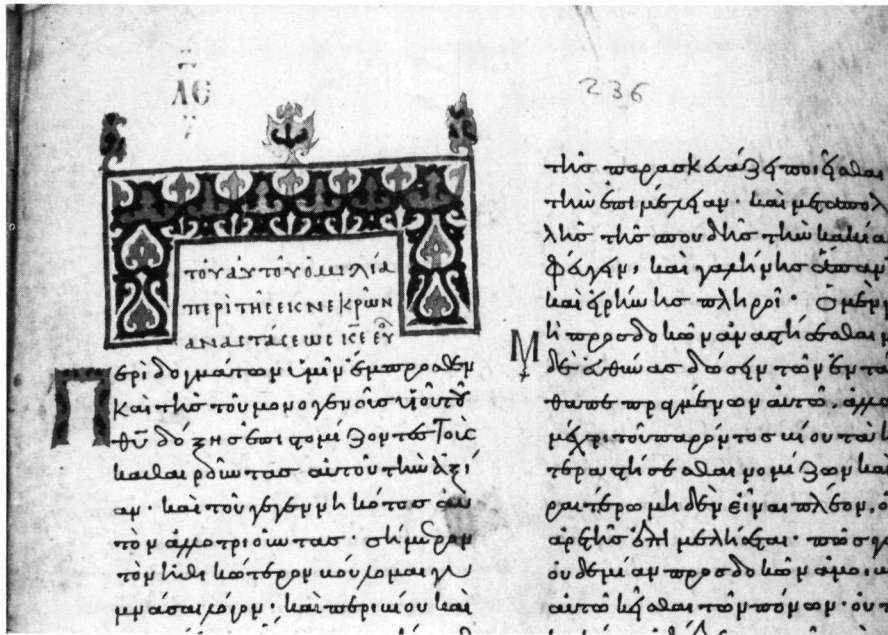 λε
236
τοῦ αὐτοῦ ὁμιλία
περὶ τῆς ἐκ νεκρῶν
ἀναστάσεως
Περὶ δογμάτων ὑμῖν ἔμπροσθεν
καὶ τῆς τοῦ μονογενοῦς υἱοῦ τοῦ
θῦ δόξης ἐπιστομίζοντες τοὺς
καθαιροῦντας αὐτοῦ τὴν ἀξί
αν· καὶ τοῦ γεγεννηκότος αὐ
τὸν ἀλλοτριοῦντας· σήμερον
τὸν ἠθικώτερον βούλομαι γυ
μνάσαι λόγον· καὶ περὶ βίου καὶ
τῆς παρασκευάζει ποιεῖσθαι
τὴν ἐπιμέλειαν· καὶ μετὰ πολ
λῆς τῆς σπουδῆς τὴν κακία
φεύγειν, καὶ γαλήνης ἅπαν
καὶ εἰρήνης πληροῖ· ὁ μὲν
Μὴ προσδοκῶν ἀναστήσεσθαι
δὲ εὐθύνας δώσειν τῶν ἐντα
θα πεπραγμένων αὐτῶ, ἀλλὰ
μέχρι τοῦ παρόντος βίου τὰ
τερα στήσεσθαι νομίζων καὶ
ραιτέρω μηδὲν εἶναι πλέον,
ἀρετῆς ἐπιμελήσεται· πῶς γ
οὐδεμίαν προσδοκῶν ἀμοι
αὐτῶ κεῖσθαι τῶν πόνων·